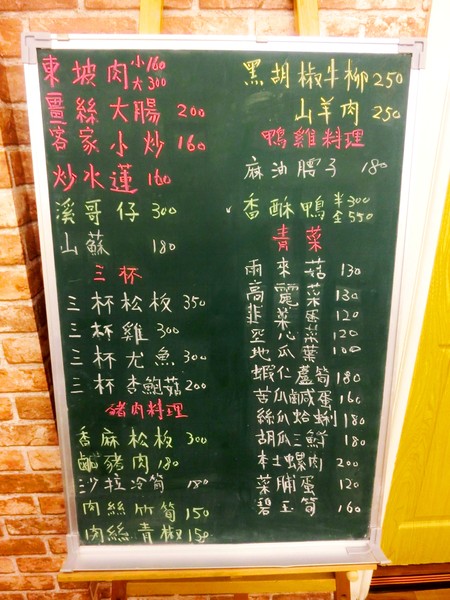 東坡肉 小160 大300
薑絲大腸 200
客家小炒 160
炒水蓮 160
溪哥仔 300
山蘇 180
三杯
三杯松板 350
三杯雞 300
三杯尤魚 300
三杯杏鮑菇 200
豬肉料理
香麻松板 300
鹹豬肉 180
沙拉冷筍 180
肉絲竹筍 150
肉絲青椒 150
黑胡椒牛柳 250
山羊肉 250
鴨雞料理
麻油腰子 180
香酥鴨 半300 全550
青菜
雨來菇 130
高麗菜 130
韭菜蛋 120
空心菜 120
地瓜葉 100
蝦仁蘆筍 180
苦瓜鹹蛋 160
絲瓜蛤蜊 180
胡瓜三鮮 180
本土螺肉 200
菜脯蛋 120
碧玉筍 160